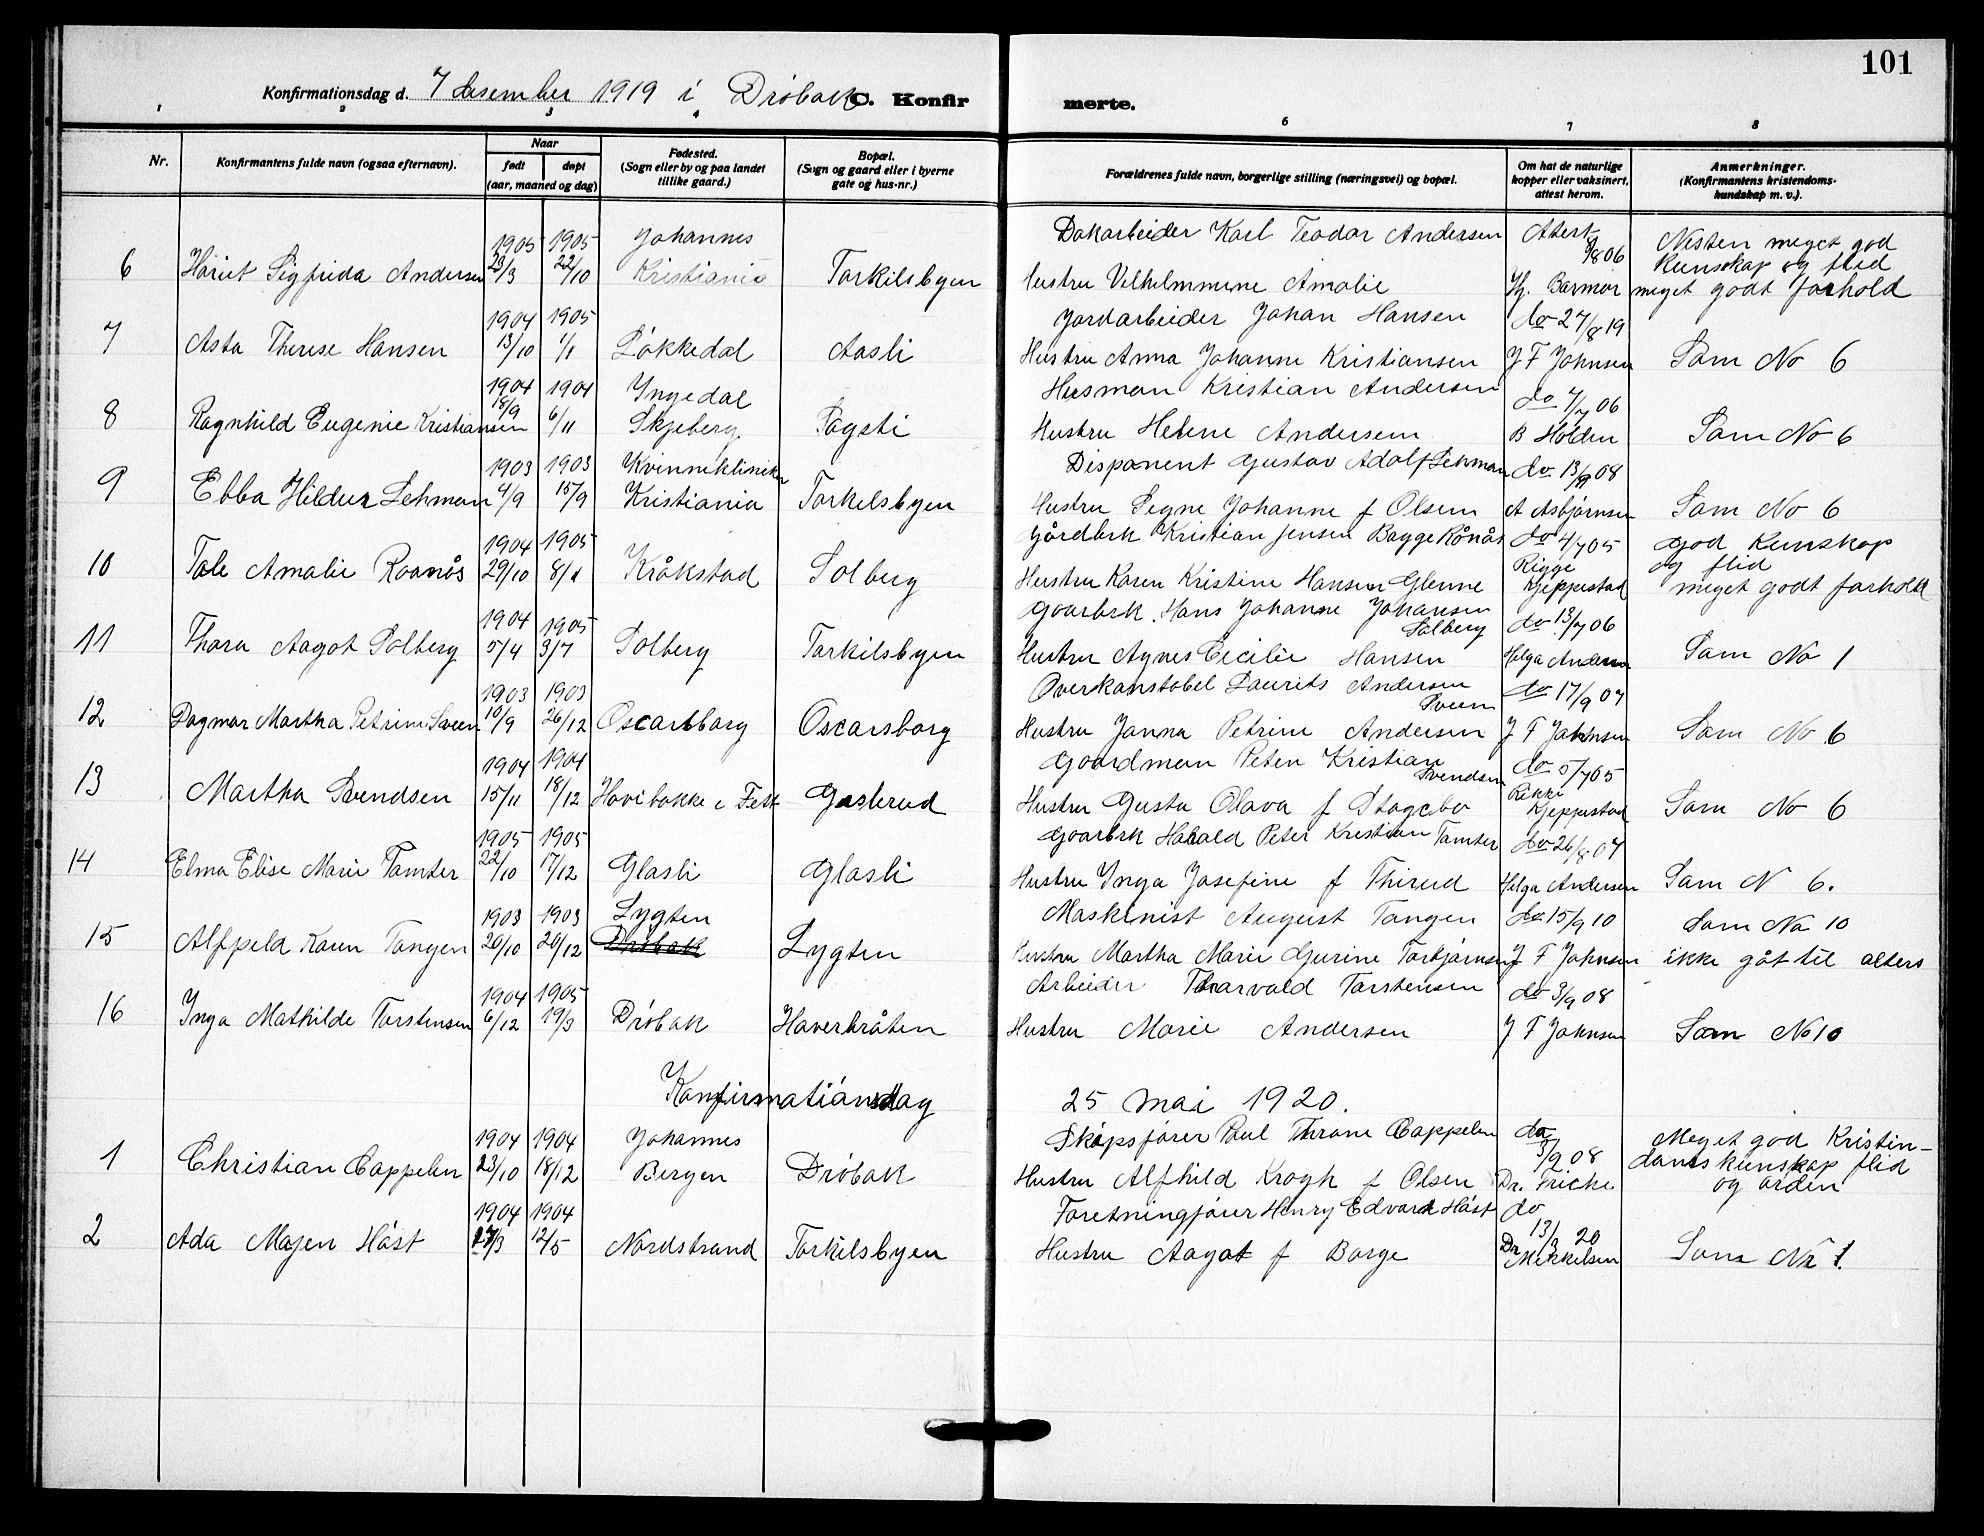 101
Konfirmationsdag d. 7 desember 1919 i Drøbak C. Konfirmerte.
1 2 3 4 6 7 8
Nr.
Konfirmantens fulde navn (ogsaa efternavn).
Naar
født
døpt
(aar, maaned og dag)
Fødested.
(Sogn eller by og paa landet
tillike gaard.)
Bopæl.
(Sogn og gaard eller i byerne
gate og hus-nr.)
Forældrenes fulde navn, borgerlige stilling (næringsvei) og bopæl.
Om hat de naturlige
kopper eller vaksinert,
attest herom.
Anmerkninger.
(Konfirmantens kristendoms-
kundskap m. v.).
1905 1905 Johannes Dokarbeider Karl Teodor Andersen Atest 8/8 06 Nesten meget god
kunskap og flid
6 Hariet Sigfrida Andersen 23/3 22/10 Kristiania Torkilsbyen Hustru Vilhelmmine Amalie Hj. Barmor meget godt forhold
1904 1905 Jordarbeider Johan Hansen do 27/8 19
7 Asta Therese Hansen 13/10 1/1 Løkkedal Aasli Hustru Anna Johanne Kristiansen J F Johnsen Som No 6
1904 1904 Yngedal Husman Kristian Andersen do 4/7 06
8 Ragnhild Eugenie Kristiansen 18/9 6/11 Skjeberg Sagsti Hustru Helene Andersen B Holden Som No 6
1903 1903 Kvinnekliniken Disponent Gustav Adolf Lehman do 13/9 08
9 Ebba Hildur Lehman 4/9 15/9 Kristiania Torkelsbyen Hustru Signe Johanne f Olsen A Asbjørnsen Som No 6
1904 1905 Gårdbrk Kristian Jensen Bagge Rånås do 4/7 05 God Kunskap
og flid
10 Tale Amalie Raanås 29/10 8/1 Kråkstad Solberg Hustru Karen Kristine Hansen Glenne Rigge Kjeppestad meget godt forhold
1904 1905 Gaarbrk. Hans Johanne Johansen Solberg do 13/7 06
11 Thora Aagot Solberg 5/4 3/7 Solberg Torkilsbyen Hustru Agnes Cicilie Hansen Helga Andersen Som No 1
1903 1903 Overkonstabel Laurits Andersen Sveen do 17/9 07
12 Dagmar Martha Petrine Sveen 10/9 26/12 Oscarsborg Oscarsborg Hustru Janna Petrine Andersen J F Johnsen Som No 6
1904 1904 Gaardman Peten Kristian Svendsen do 5/7 05
13 Martha Svendsen 15/11 18/12 Havibakke i Fetk Gaslerud Hustru Gusta Olava f Stagebo Rikke Kjeppestad Som No 6
1905 1905 Gaarbrk Harald Peter Kristian Tamter do 26/8 07
14 Elma Elise Marie Tamter 22/10 17/12 Glasli Glasli Hustru Inga Josefine f Thirud Helga Andersen Som N 6.
1903 1903 Lygten Maskinist August Tangen do 15/9 10 Som No 10
15 Alfpeld Karen Tangen 20/10 20/12 Drøbak Lygten Hustru Martha Marie Gurine Torbjørnsen J F Johnsen ikke gåt til alters
1904 1905 Arbeider Thorvald Torstensen do 3/9 08
16 Inga Mathilde Torstensen 6/12 19/3 Drøbak Haverbråten Hustru Marie Andersen J F Johnsen Som No 10
Konfirmationsdag 25 mai 1920.
1904 1904 Johannes Skipsfører Paul Thrane Cappelen do 3/9 08 Meget god Kristin-
domskunskap flid
1 Christian Cappelen 23/10 18/12 Bergen Drøbak Hustru Alfhild Krogh f Olsen Dr. Fricke og orden
1904 1904 Foretningfører Henry Edvard Høst do 13/3 20
2 Ada Majen Høst 27/3 12/5 Nordstrand Torkilsbyen Hustru Aagot f Borge Dr Mikkelsen Som Nr 1.